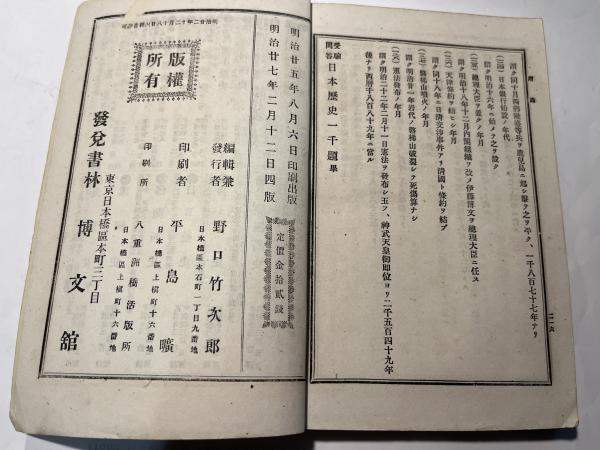 附錄
二一六
謂ク同十月西鄕隆盛等兵ヲ鹿兒島ニ起シ擊テ之ヲ平ク、一千八百七十七年ナリ
(三四)日本銀行創設ノ年代
謂ク明治十六年ニ始メテ之ヲ設ク
(三五)總理大臣ヲ置クノ年月
謂ク明治十八年十二月内閣組織ヲ改メ伊藤博文ヲ總理大臣ニ任ス
(三六)天津條約ヲ結ヒシ年月
謂ク同十八年ニ日清交渉事件アリ清國ト條約ヲ結ブ
(三七)磐梯山噴火ノ年月
謂ク明治廿一年岩代ノ磐梯山破裂シテ死傷算ナシ
(三八)憲法發布ノ年月
謂ク明治二十二年二月十一日憲法ヲ發布シ玉フ、神武天皇御即位ヨリ二千五百四十九年
後ナリ西暦千八百八十九年ニ當ル
受驗問答日本歷史一千題畢
明治廿五年八月六日印刷出版
明治廿七年二月十二日四版
定價金拾貳錢
版權所有
編輯兼發行者
野口竹次郎
日本橋區本石町一丁目九番地
印刷者
平島曠
日本橋區上槇町十六番地
印刷所
八重洲橋活版所
日本橋區上槇町十六番地
發兌書林
東京日本橋區本町三丁目
博文館